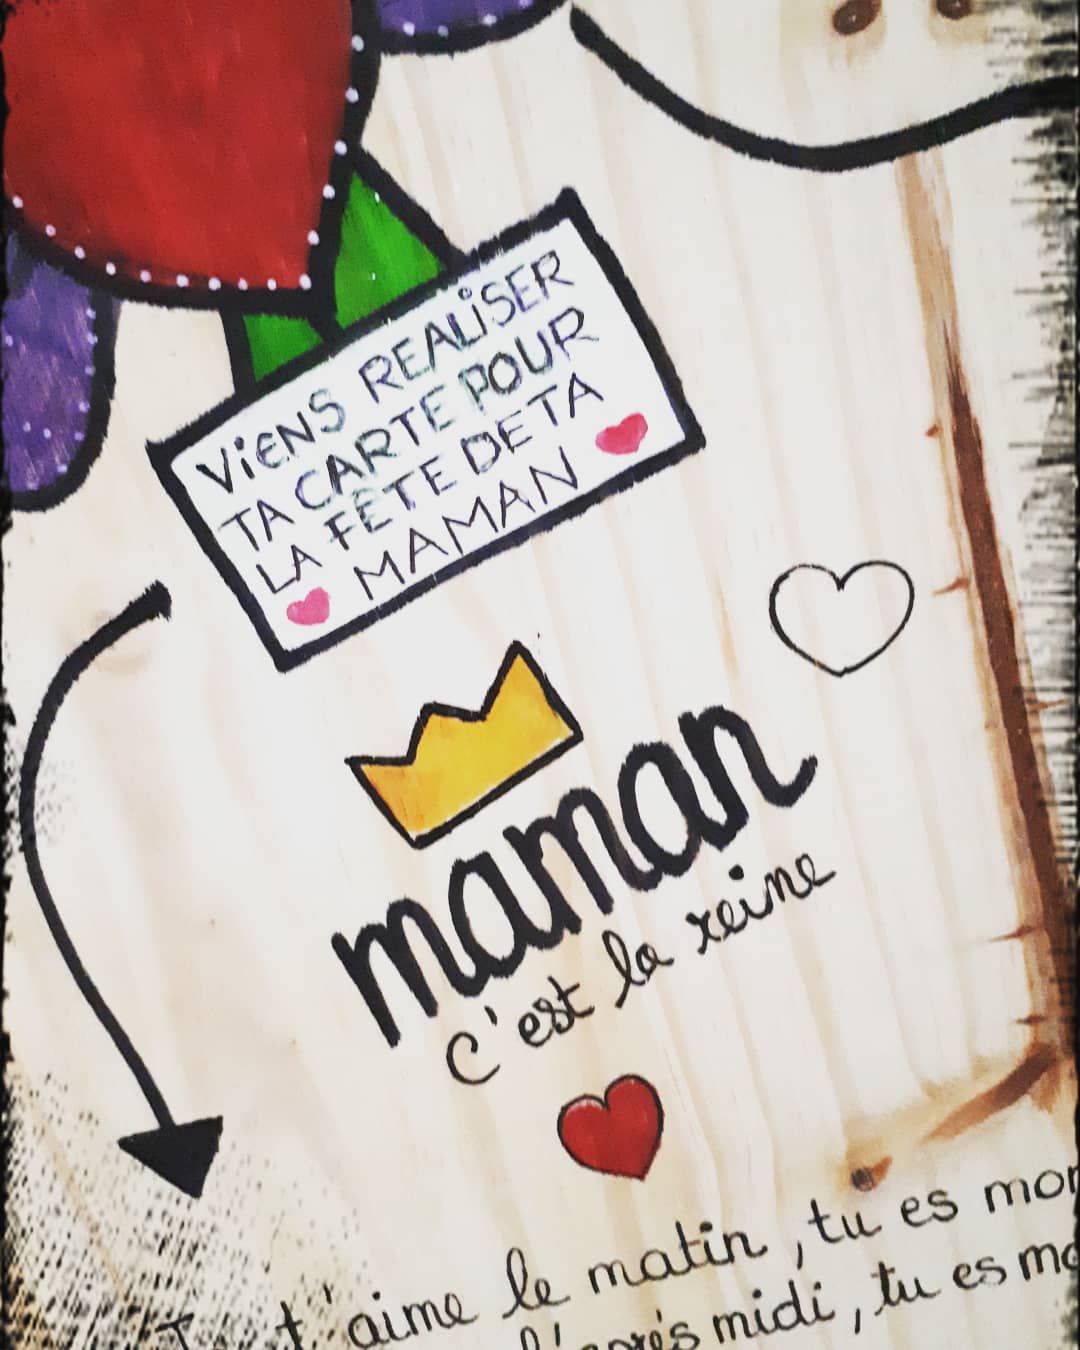 ViENS REALiSER
TA CARTE POUR
LA FÊTE DE TA
MAMAN
maman
c'est la reine
t'aime le matin, tu es
l'après midi, tu es